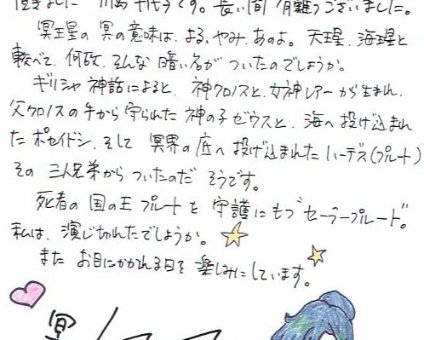 頂きました 川島 千代子です。長い間 有難うございました。
冥王星の 冥の意味は、よる、やみ、あのよ。天王星、海王星と
較べて、何故、そんな 暗い名が ついたのでしょうか。
ギリシャ 神話によると、神クロノスと、女神レアーから生まれ、
父クロノスの手から 守られた 神の子 ゼウスと、海へ 投げ込まれ
た ポセイドン、そして 冥界の 底へ 投げ込まれた ハーデス(プルート)
その 三人兄弟から ついたのだ そうです。
死者の 国の王 プルートを 守護にもつ"セーラープルート"。
私は、演じ切れたでしょうか。
また お目にかかれる日を 楽しみにしています。
冥